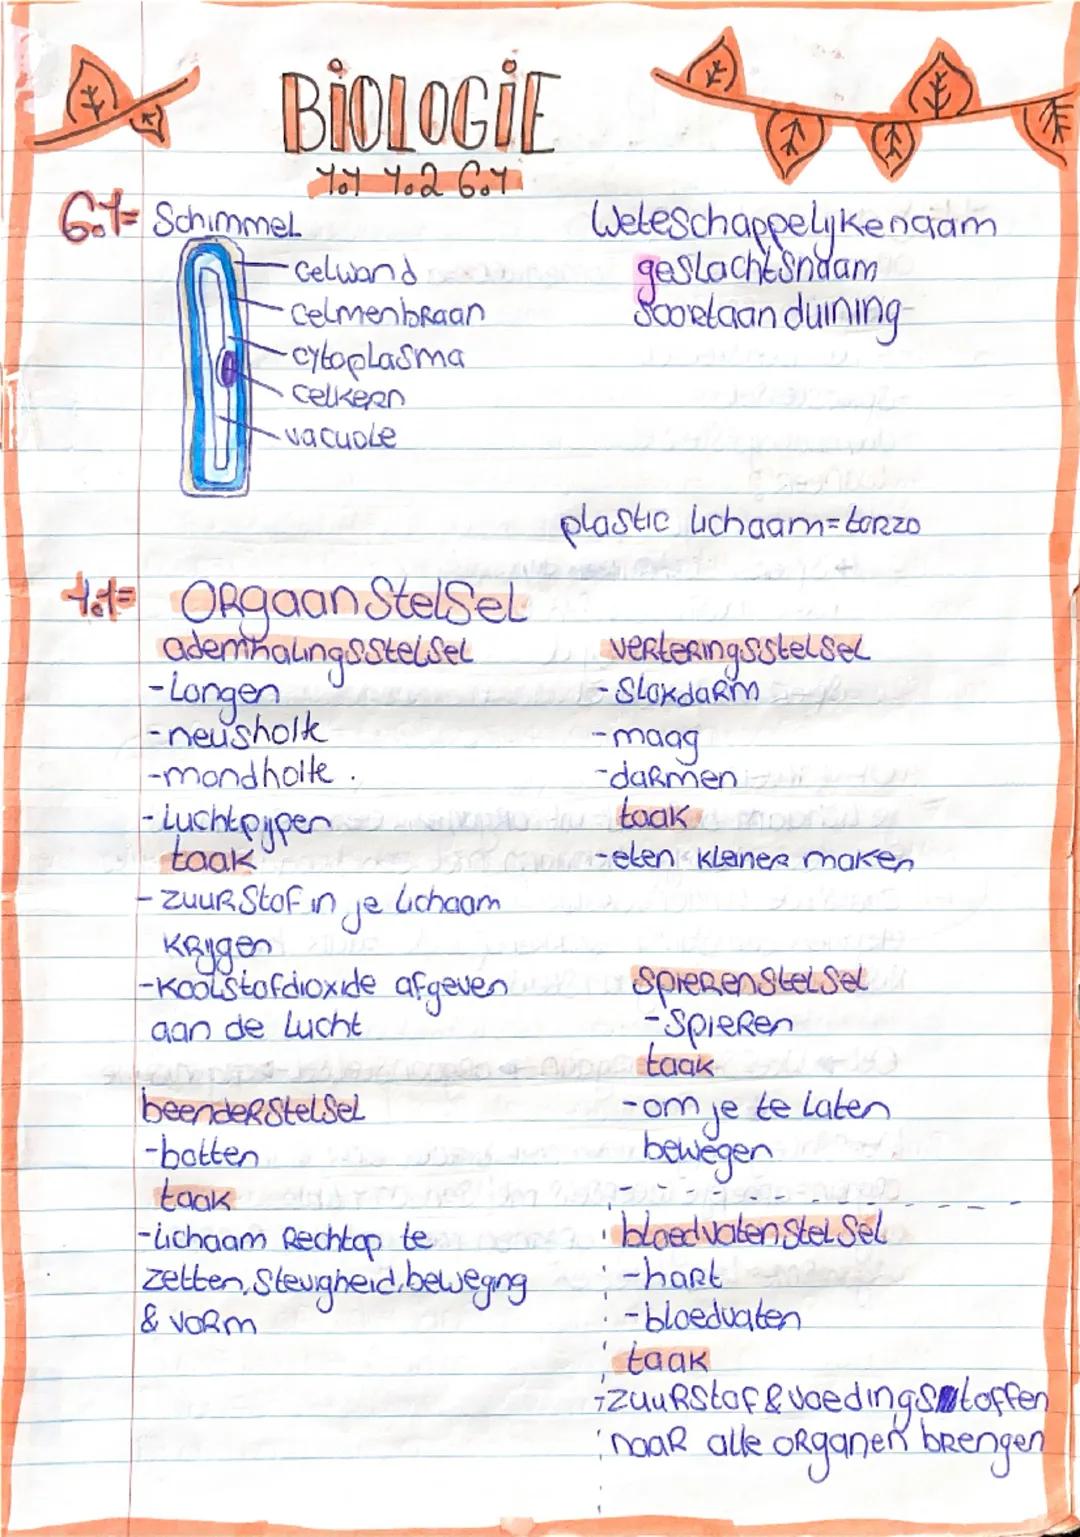 BiOLOGiE
1.1 1.2 6.1
6.1= Schimmel
celwand
celmenbraan
cytoplasma
celkern
vacuole
Weteschappelijke naam
geslachtsnaam
soortaanduining
plastic lichaam=torzo
1.1= Orgaanstelsel
ademhalingsstelsel
-Longen
-neusholte
-mondholte.
-luchtpijpen
taak
-zuurstof in je lichaam
krijgen
-koolstofdioxide afgeven
aan de lucht
beenderstelsel
-botten
taak
-lichaam rechtop te
zetten, stevigheid, beweging
& vorm
verteringsstelsel
-slokdarm
-maag
-darmen
taak
-eten kleiner maken
spierenstelsel
-spieren
taak
-om je te laten
bewegen
bloedvatenstelsel
-hart
-bloedvaten
taak
-zuurstof & voedingsstoffen
naar alle organen brengen